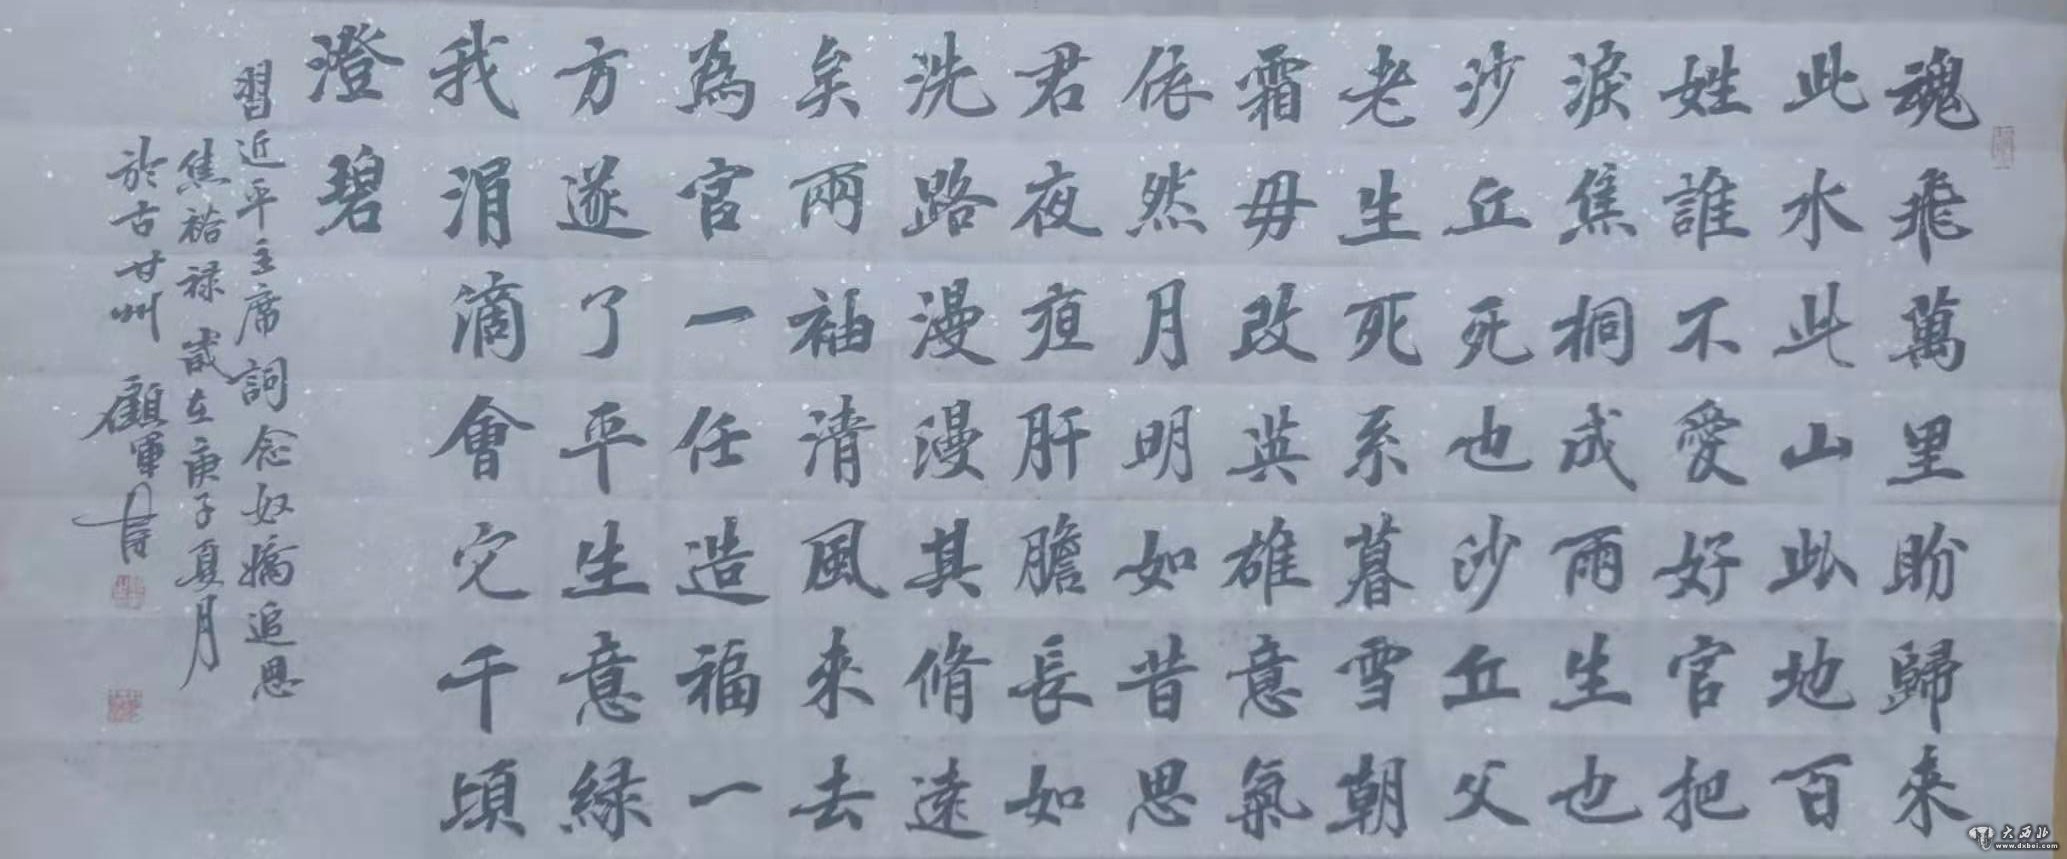 魂飛萬里盼歸來
此水此山此地百
姓誰不愛好官把
淚焦桐成雨生也
沙丘死也沙丘父
老生死系暮雪朝
霜毋改英雄意氣
依然月明如昔思
君夜夜肝膽長如
洗路漫漫其脩遠
矣兩袖清風來去
為官一任造福一
方遂了平生意綠
我涓滴會它千頃
澄碧
習近平主席詞念奴嬌追思
焦裕禄歲在庚子夏月
於古甘州 顧軍書
大西北
www.dxbei.com